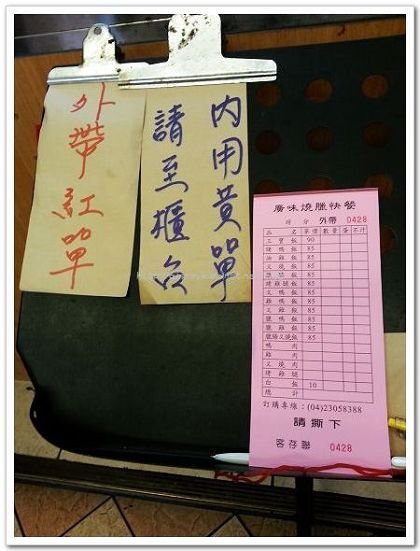 外帶紅單
內用黃單
請至櫃台
廣味燒臘快餐
時 分 外帶 0428
品名 單價 數量 蛋 不汁
三寶飯 90
燒鴨飯 85
油雞飯 85
叉燒飯 85
飯 85
烤雞腿飯 85
叉鴨飯 85
雞鴨飯 85
叉雞飯 85
臘鴨飯 85
臘雞飯 85
臘腸叉燒飯 85
鴨肉
雞肉
叉燒肉
烤雞腿
白飯 10
總計
訂購專線：(04)23058388
請撕下
客存聯 0428